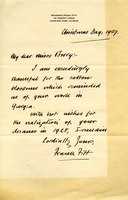 Christmas Day, 1927.
My dear Miss Berry:-
I am exceedingly
thankful for the cotton
blossoms which reminded
us of your work in
Georgia.
With best wishes for
the realization of your
dreams in 1928, I remain
Cordially Yours,